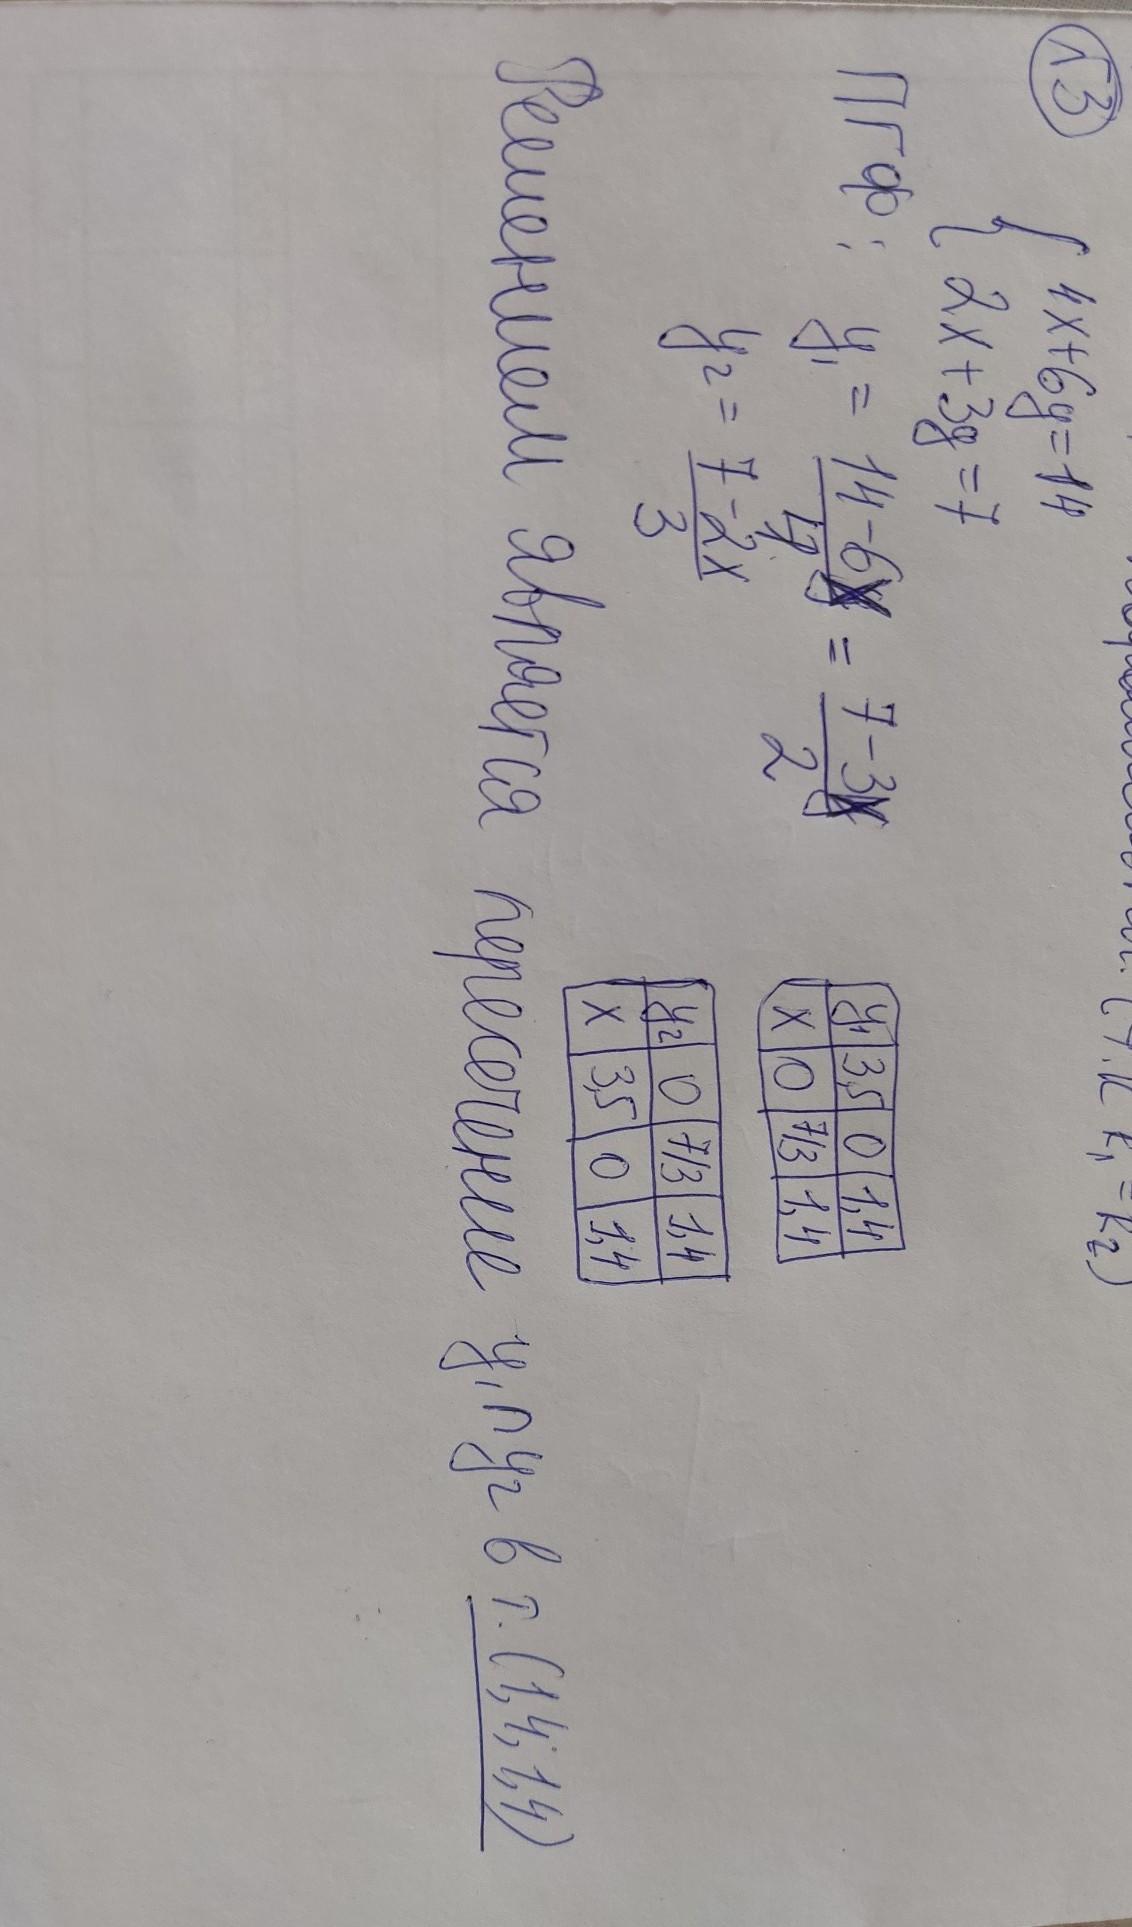 (т.к k₁ = k₂)
Г3
{ 4x+6y=14
2x+3y=7
ПГФ: y₁ = 14-6x/4 = 7-3x/2
y₁ 3,5 0 1,4
x 0 7/3 1,4
y₂ = 7-2x/3
y₂ 0 7/3 1,4
x 3,5 0 1,4
Решением является пересечение y₁ ∩ y₂ в т. (1,4; 1,4)